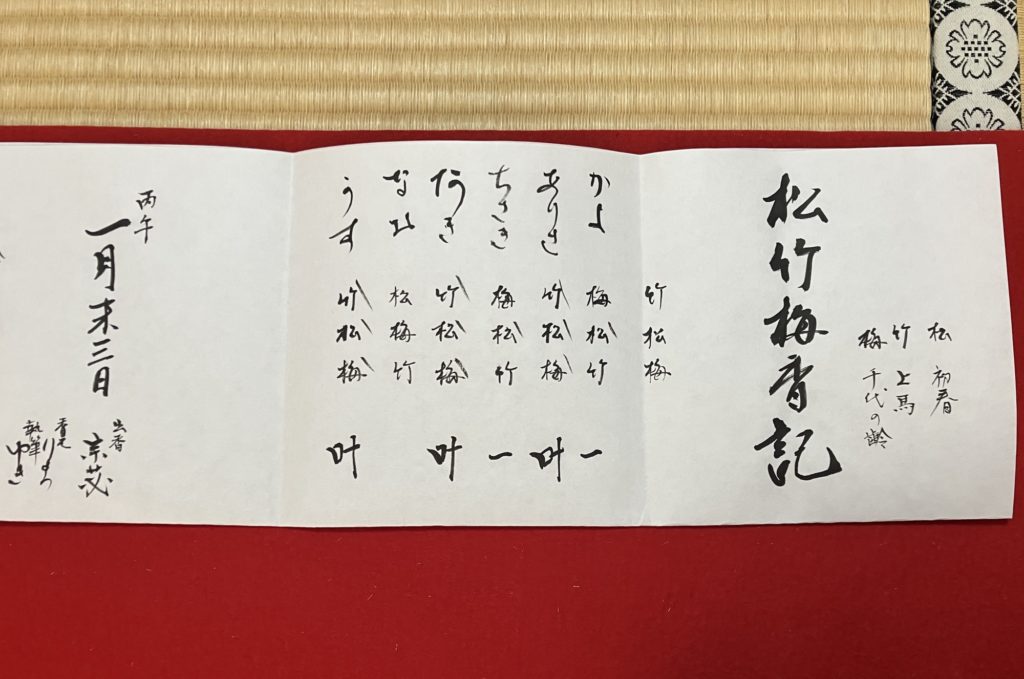 松 初春
竹 上馬
梅 千代の齢
松竹梅香記
竹 松 梅
かよ 梅 松 竹 一
ありさ 竹 松 梅 叶
ちさき 梅 松 竹 一
竹 松 梅 叶
なお 松 梅 竹
うす 竹 松 梅 叶
丙午
一月末三日
出香 宗苾
香元
執筆 ゆき